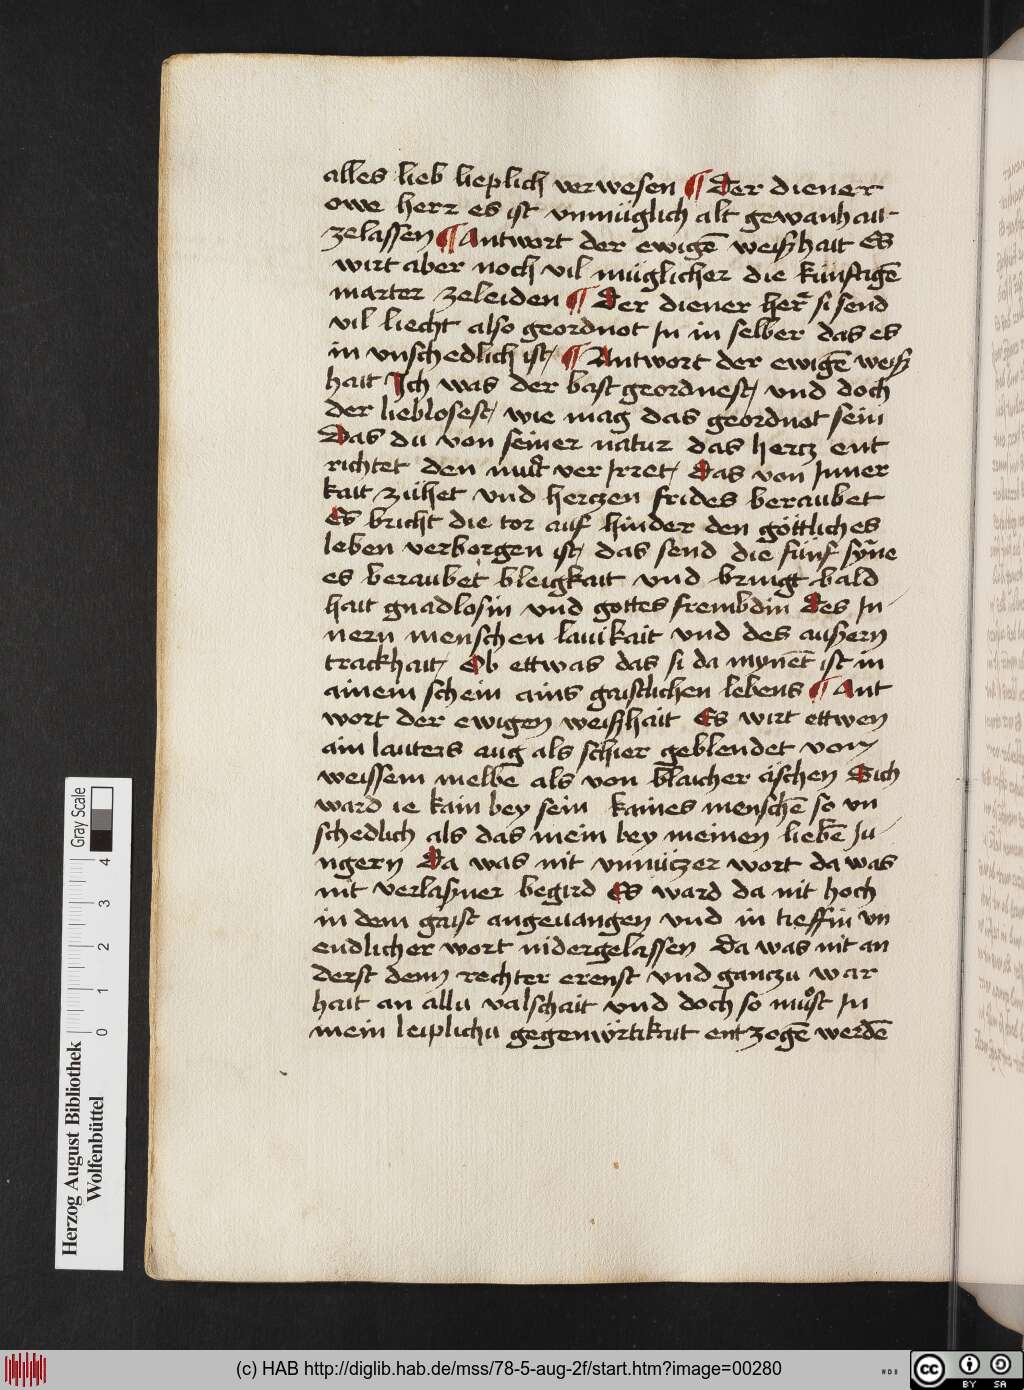 alles lieb lieplich verwesen ¶ Der diener
owe herr es ist vnmüglich alt gewanhait
zelassen ¶ Antwort der ewigē weißhait Es
wirt aber noch vil müglicher die künftigē
marter zeleiden ¶ Der diener her̄ si send
vil liecht also geordnot In in selber das es
in vnschedlich ist / ¶ Antwort der ewigē weiß
hait Ich was der bast geordnest / vnd doch
der lieblosest / wie mag das geordnot sein
Das da von seiner natur das hertz ent
richtet den ver Irret / Das von Inner
kait zühet vnd hertzen frides beraubet
Es bricht die tor auf hinder den göttliches
leben verborgen ist / das send die fünf sÿne
es beraubet bleigkait vnd bringt bald
hait gnadlosin vnd gottes frembdin Des In
nern menschen lauikait vnd des ausern
trackhait / Ob ettwas das si da mynēt ist in
ainem schein ains gaistlichen lebens ¶ Ant
wort der ewigen weißhait Es wirt ettwen
ain lauters aug als schier geblendet von
weissem melbe als von blaicher äschen Sich
ward ie kain bey sein kaines menschē so vn
schedlich als das mein bey meinen liebē Ju
ngern Da was nit vnnützer wort da was
nit verlasner begird Es ward da nit hoch
in dem gaist angeuangen vnd in tieffin vn
endlicher wort nidergelassen Da was nit an
derst denn rechter erenst vnd gantzu war
hait an allu valschait vnd doch so muͦst In
mein leiplichu gegenwürtikait entzogē werdē
Herzog August Bibliothek
Wolfenbüttel
Gray Scale
0 1 2 3 4
(c) HAB http://diglib.hab.de/mss/78-5-aug-2f/start.htm?image=00280
cc BY SA